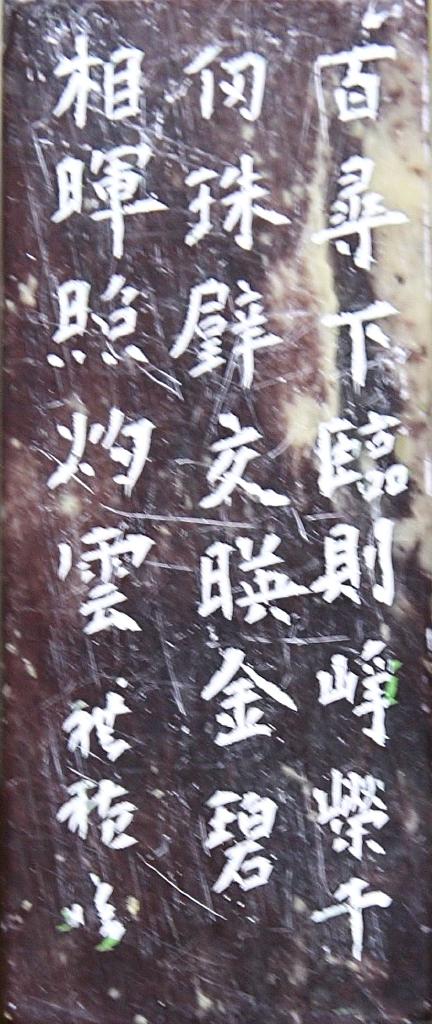 百尋下臨則崢嶸千
仞珠璧交暎金碧
相暉照灼雲